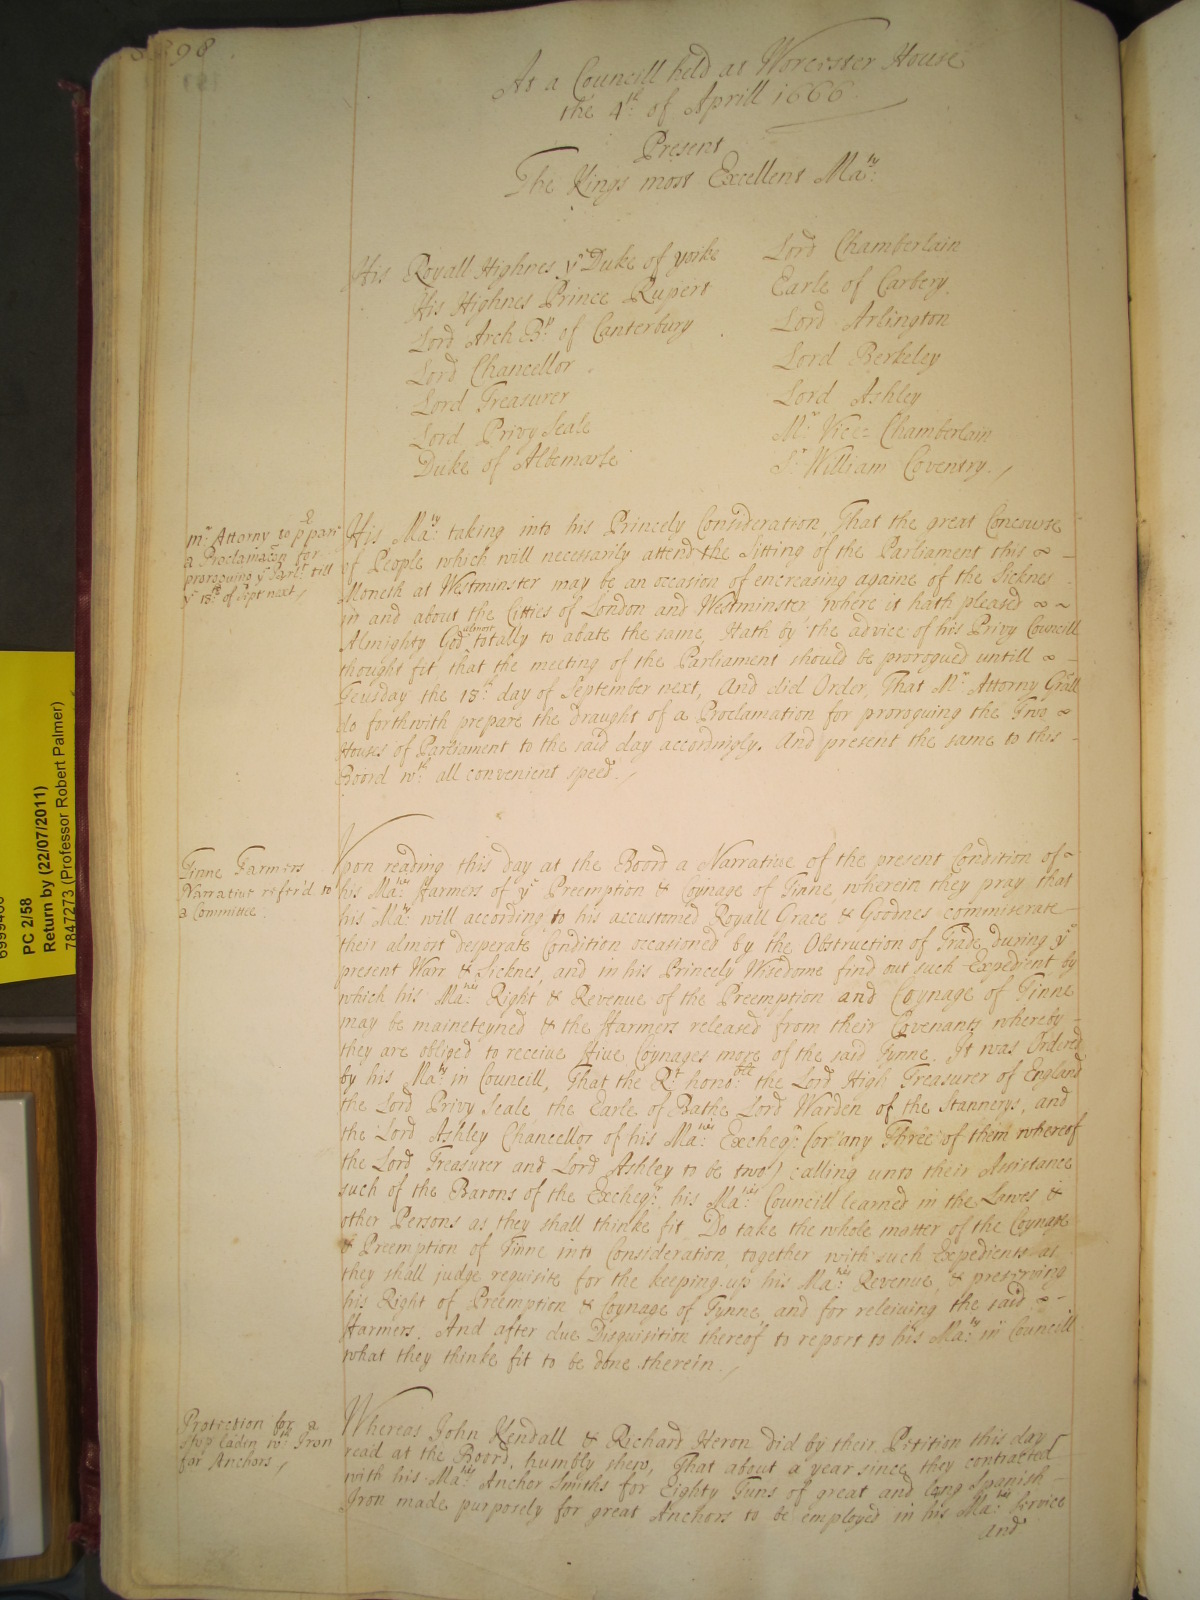 398
At a Councill held at Worcester House
the 4th: of Aprill 1666
Present
The Kings most Excellent Maty:
His Royall Highnes ye Duke of yorke
His Highnes Prince Rupert
Lord Arch Bp: of Canterbury
Lord Chancellor
Lord Treasurer
Lord Privy Seale
Duke of Albemarle
Lord Chamberlain
Earle of Carbery
Lord Arlington
Lord Berkeley
Lord Ashley
Mr Vice= Chamberlain
Sr William Coventry.
mr Attorny to ppare
a Proclamacon for
proroguing ye Parlt: till
ye 18th of Sept next
His Maty: taking into his Princely Consideration, That the great Concourse
of People which will necessarily attend the Sitting of the Parliament this
Moneth at Westminster may be an occasion of encreasing againe of the Sicknes
in and about the Citties of London and Westminster, where it hath pleased
Almighty God almost totally to abate the same, Hath by the advice of his Privy Councill
thought fit that the meeting of the Parliament should be prorogued untill
Teusday the 18th: day of September next, And did Order, That Mr: Attorny Grall
do forthwith prepare the draught of a Proclamation for proroguing the Two
Houses of Parliament to the said day accordingly. And present the same to this
Board wth: all convenient speed.
Tinne Farmers
Narrative refer'd to
a Committee
Vpon reading this day at the Board a Narrative of the present Condition of
his Mats: ffarmers of ye Preemption & Coynage of Tinne, wherein they pray that
his Maty: will according to his accustomed Royall Grace & Goodnes commiserate
their almost desperate Condition occasioned by the Obstruction of Trade during ye
present Warr & Sicknes, and in his Princely Wisedome find out such Expedient by
which his Mats: Right & Revenue of the Preemption and Coynage of Tinne
may be maineteyned & the ffarmers released from their Covenants whereby
they are obliged to receive ffive Coynages more of the said Tynne. It was Ordered
by his Maty: in Councill, That the Rt: honoble: the Lord High Treasurer of England
the Lord Privy Seale, the Earle of Bathe Lord Warden of the Stannerys, and
the Lord Ashley Chancellor of his Mats: Excheqr: (or any Three of them whereof
the Lord Treasurer and Lord Ashley to be two) calling unto their Assistance
such of the Barons of the Excheqr: his Mats: Councill learned in the Lawes &
other Persons as they shall thinke fit Do take the whole matter of the Coynage
& Preemption of Tinne into Consideration, together with such Expedients as
they shall judge requisite for the keeping up his Mats: Revenue, & preserving
his Right of Preemption & Coynage of Tynne, and for releiving the said
ffarmers. And after due Disquisition thereof to report to his Maty: in Councill
what they thinke fit to be done therein.
Protection for a
Ship laden wth: Iron
for Anchors
Whereas John Kendall & Richard Heron did by their Petition this day
read at the Board, humbly shew, That about a year since they contracted
with his Mats: Anchor Smiths for Eighty Tuns of great and long Spanish
Iron made purposely for great Anchors to be employed in his Mats: Service
and
PC 2/58
Return by (22/07/2011)
7847273 (Professor Robert Palmer)